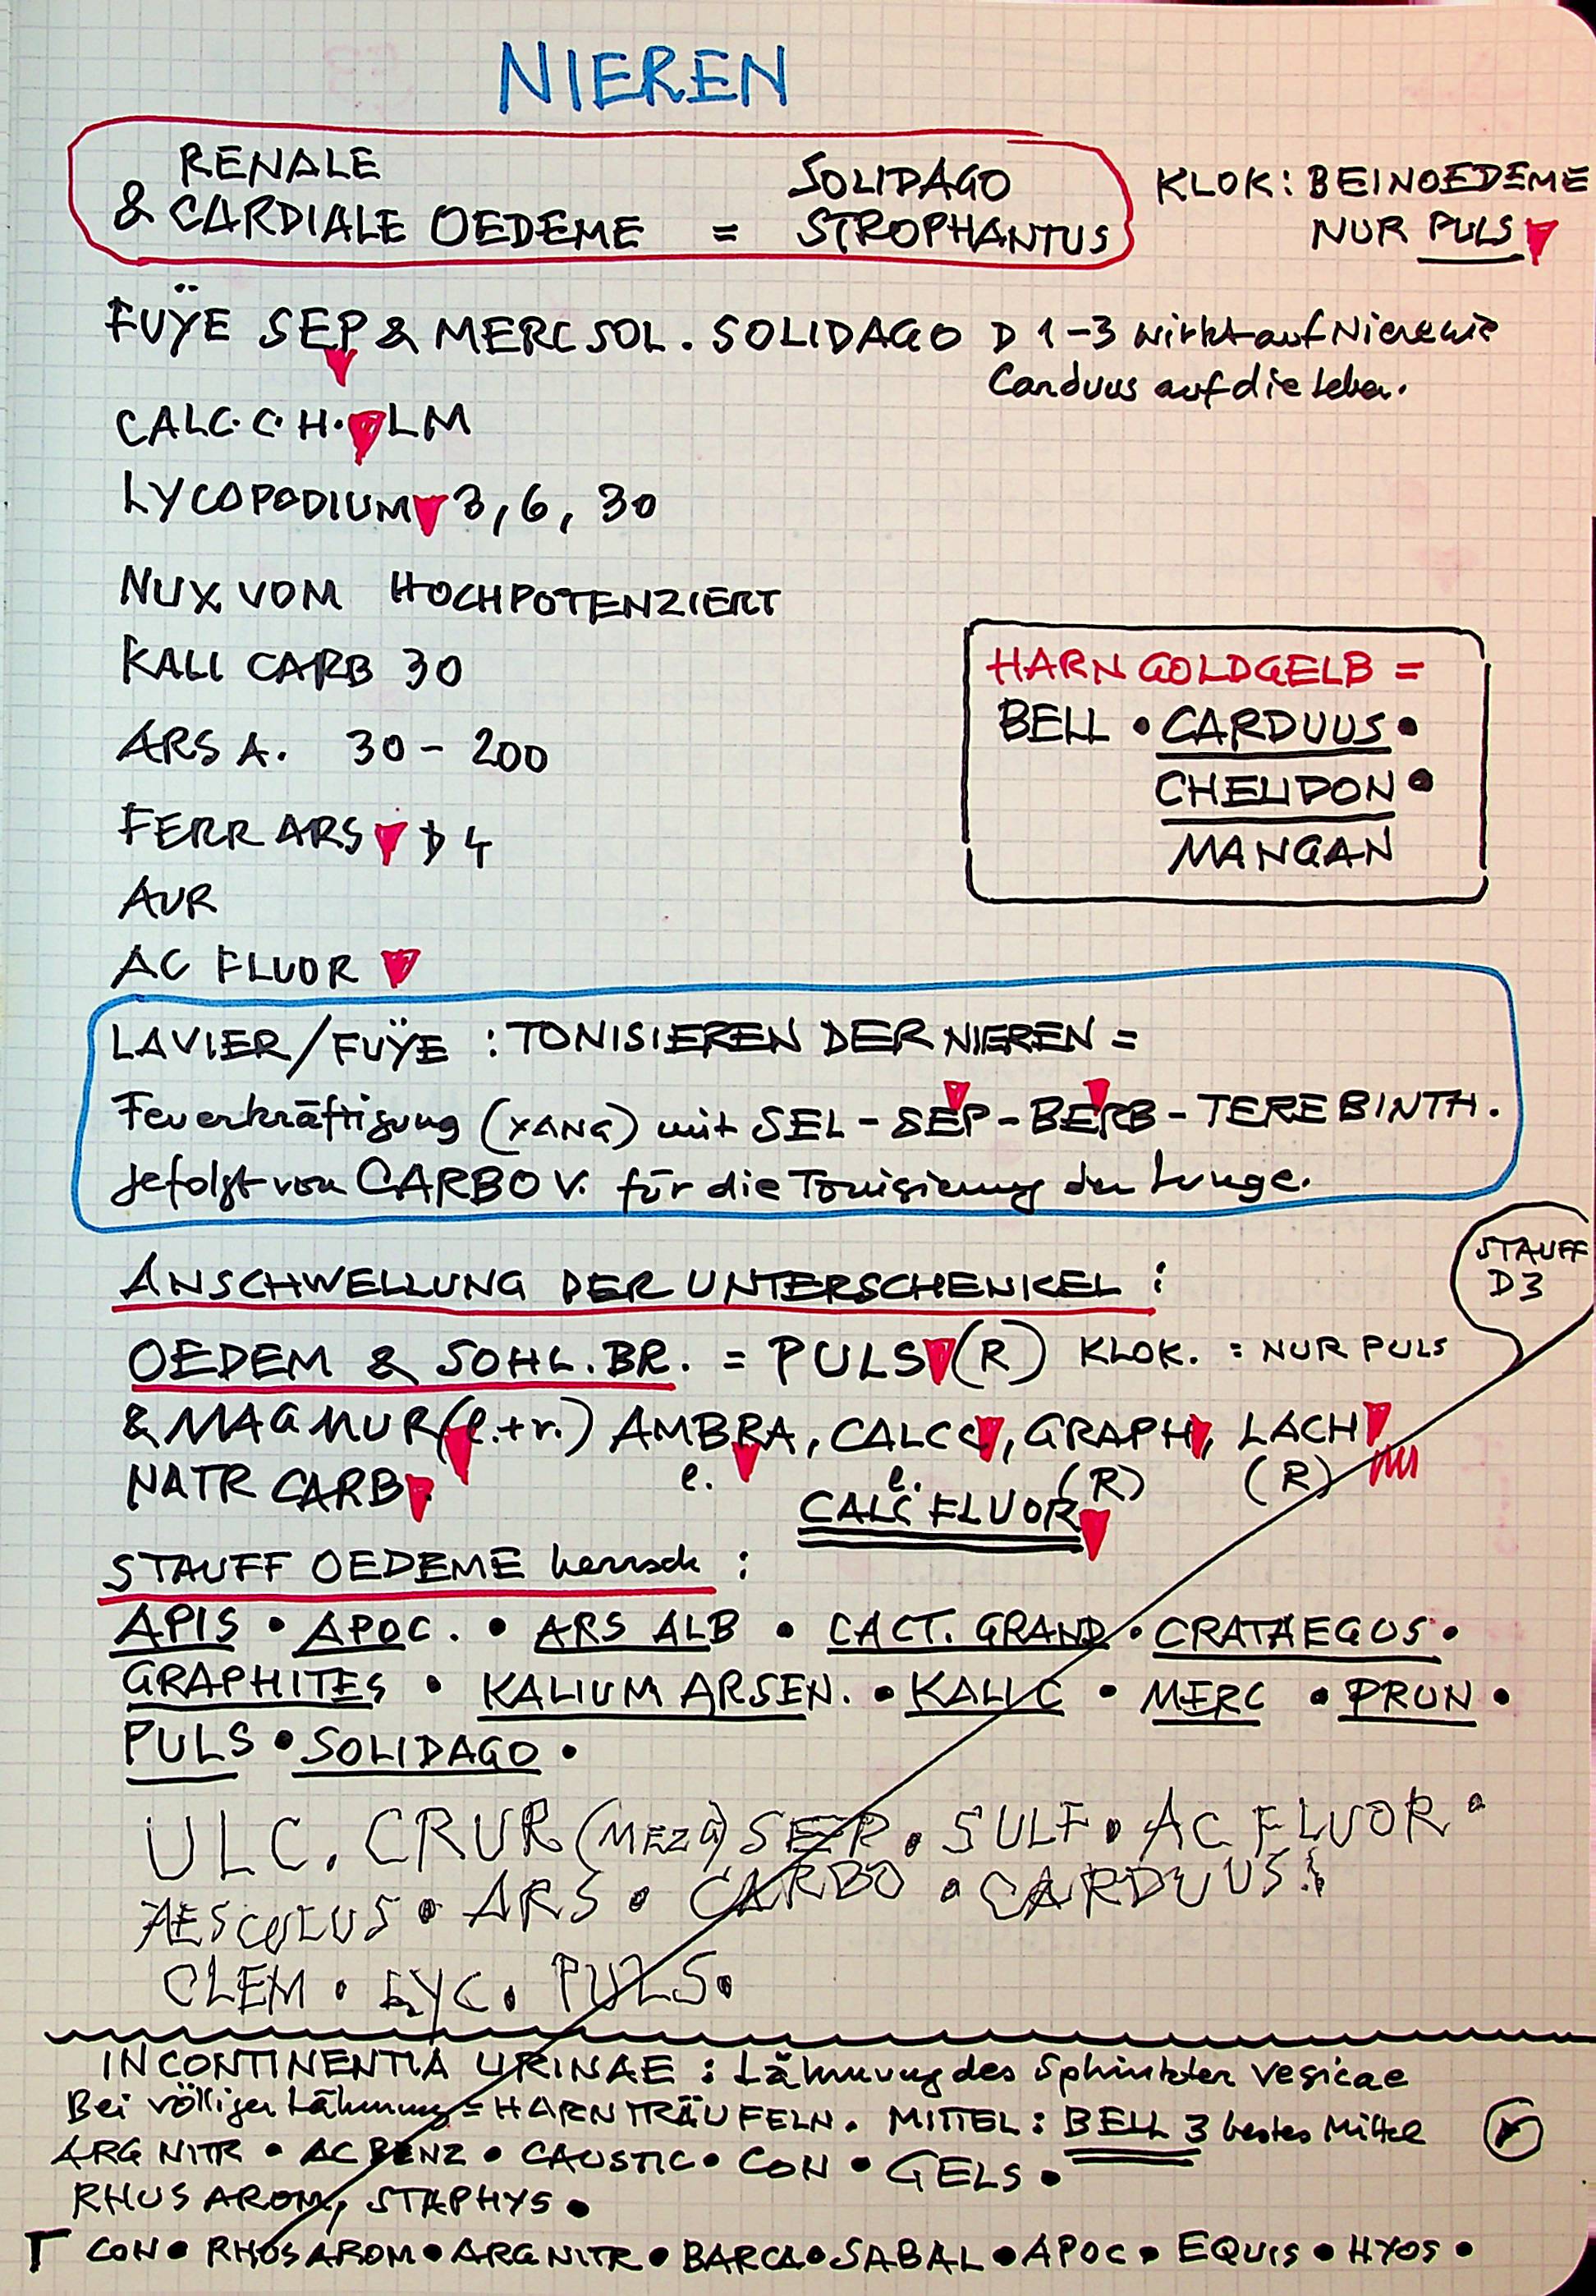 NIEREN
RENALE
& CARDIALE OEDEME = SOLIDAGO STROPHANTUS
KLOK: BEINOEDEME
NUR PULS
FUŸE SEP & MERC SOL. SOLIDAGO D 1-3 wirkt auf Niere wie
Carduus auf die Leber.
CALC. C. H. LM
LYCOPODIUM 3, 6, 30
NUX VOM HOCHPOTENZIERT
KALI CARB 30
ARS A. 30 - 200
FERR ARS D 4
AUR
AC FLUOR
HARN GOLDGELB =
BELL • CARDUUS •
CHELIDON •
MANGAN
LAVIER/FUŸE : TONISIEREN DER NIEREN =
Feuerkräftigung (YANG) mit SEL - SEP - BERB - TEREBINTH.
gefolgt von CARBO V. für die Tonisierung der Lunge.
ANSCHWELLUNG DER UNTERSCHENKEL :
STAUFF
D3
OEDEM & SOHL. BR. = PULS (R) KLOK. : NUR PULS
& MAG MUR (l.+r.) AMBRA, CALC C, GRAPH, LACH
l. l. (R) (R)
NATR CARB. CALC FLUOR
STAUFF OEDEME :
APIS • APOC. • ARS ALB • CACT. GRAND • CRATAEGUS •
GRAPHITES • KALIUM ARSEN. • KALI C • MERC • PRUN •
PULS • SOLIDAGO •
ULC. CRUR (MEZ) SEP. SULF. AC FLUOR
AESCULUS • ARS • CARBO • CARDUUS!
CLEM • LYC. PULS.
INCONTINENTIA URINAE : Lähmung des Sphinkter vesicae
Bei völliger Lähmung = HARNTRÄUFELN. MITTEL : BELL 3 bestes Mittel
ARG NITR • AC BENZ • CAUSTIC • CON • GELS •
RHUS AROM, STAPHYS •
CON • RHUS AROM • ARG NITR • BAR CA • SABAL • APOC • EQUIS • HYOS •